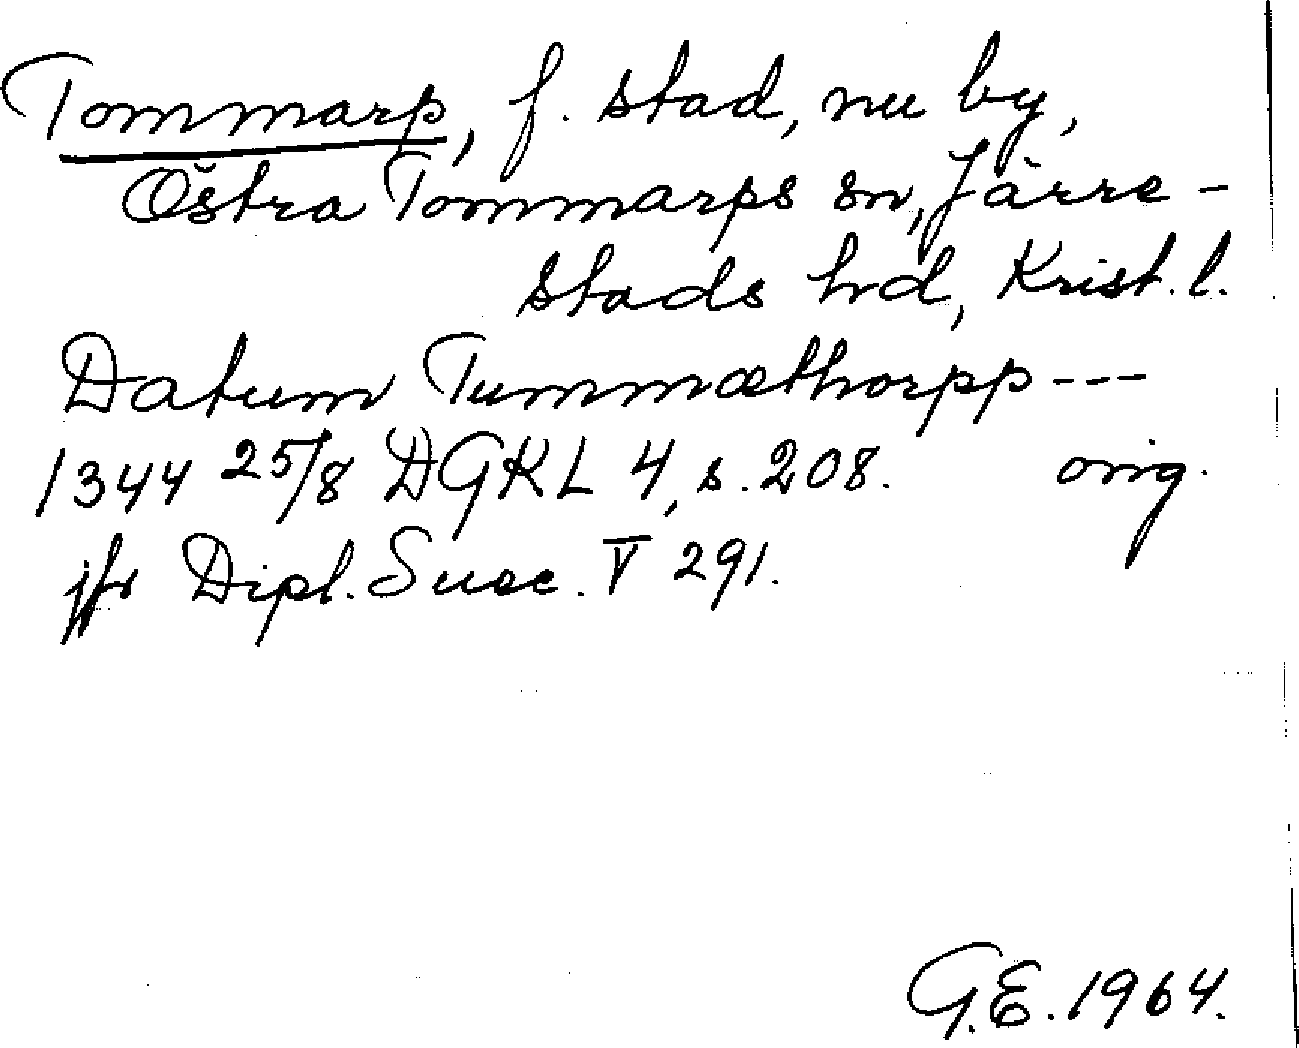 Tommarp, f. stad, nu by,
Östra Tommarps sn, Järre-
stads hd, Krist. l.
Datum Tummæthorpp ---
1344 25/8 DGKL 4, s. 208. orig.
jfr Dipl. Suec. V 291.
G.E. 1964.